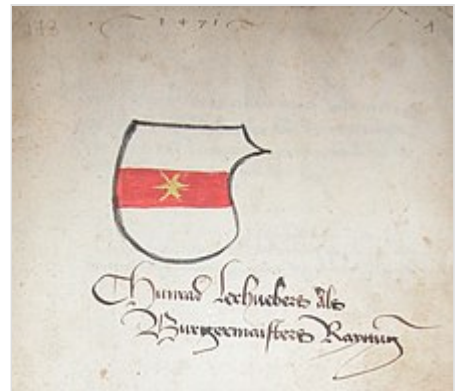 1471
Chunrad Lerhuebers als
Burgermaisters Raytung